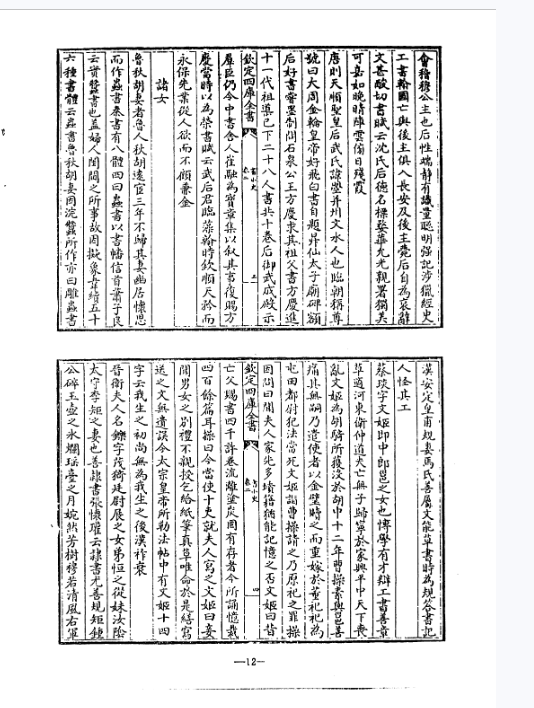 會稽穆公主也后性端靜有識量聰明强記涉獵經史
工書翰國亡與後主俱入長安及後主薨后自為哀辭
文甚酸切書賦云沈氏后德名標婺華尤尤親署獨美
可嘉如晚晴陣雲傍日殘霞
唐則天順聖皇后武氏諱曌并州文水人也臨朝稱尊
號曰大周金輪皇帝好飛白書自題昇仙太子廟碑額
后好書嘗墨制問石泉公王方慶求其祖父書方慶進
十一代祖導已下二十八人書共十卷后御武成殿示
欽定四庫全書
書小史
卷二
羣臣仍令中書舍人崔融為寶章集以叙其事復賜方
慶當時以為榮書賦云武后君臨藻翰時欽順天矜而
永保先業從人欲而不顧兼金
諸女
魯秋胡妻者魯人秋胡遠宦三年不歸其妻幽居懷思
而作蟲書秦書有八體四曰蟲書以書幡信首蕭子良
云實蠶書也蓋婦人閨閣之所事故因擬象五十
六種書體云蟲書魯秋胡妻因浣蠶所作亦曰雕蟲書
漢安定皇甫規妻馬氏善屬文能草書時為規答書記
人怪其工
蔡琰字文姬即中郎邕之女也博學有才辯工書善章
草適河東衛仲道夫亡無子歸寧於家興平中天下喪
亂文姬為胡騎所獲没於胡中十二年曹操素與邕善
痛其無嗣乃遣使者以金璧贖之而重嫁於董祀祀為
屯田都尉犯法當死文姬詣曹操請之乃原祀之罪操
因問曰聞夫人家先多墳籍猶能記憶之否文姬曰昔
欽定四庫全書
書小史
卷二
四
亡父賜書四千許卷流離塗炭罔有存者今所誦憶裁
四百餘篇耳操曰今當使十吏就夫人寫之文姬曰妾
聞男女之别禮不親授乞給紙筆真草唯命於是繕寫
送之文無遺誤今太宗皇帝所勒法帖中有文姬十四
字云我生之初尚無為我生之後漢祚衰
晉衛夫人名鑠字茂漪廷尉展之女弟恒之從妹汝陰
太守李矩之妻也善隸書張懷瓘云隸書尤善規矩鍾
公碎玉壺之氷爛瑶臺之月婉然芳樹穆若清風右軍
—12—